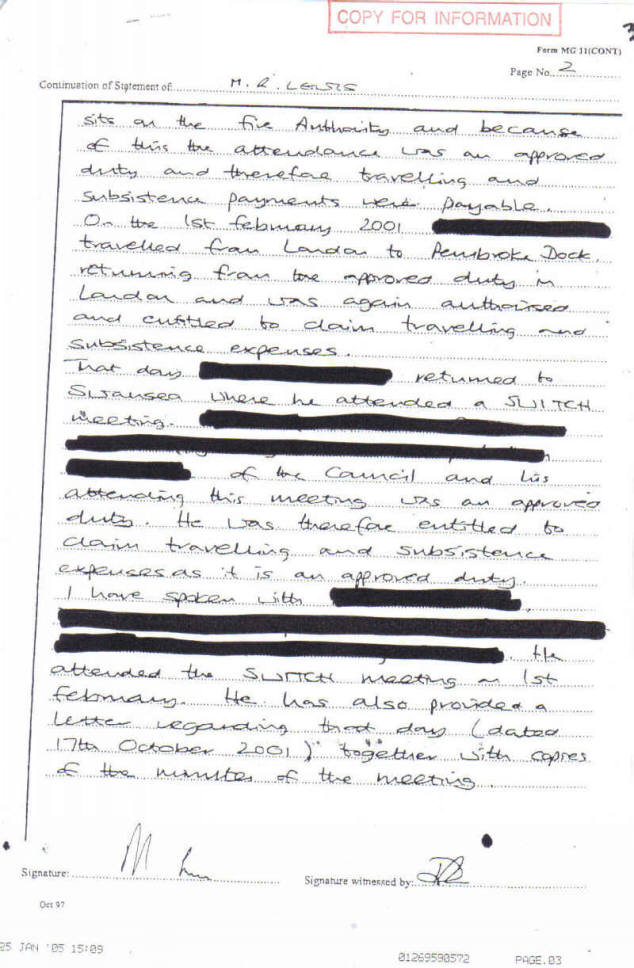 COPY FOR INFORMATION
3
Form MG 11(CONT)
Page No. 2
Continuation of Statement of: M. R. LEWIS
sits on the fire Authority and because
of this the attendance was an approved
duty and therefore travelling and
subsistence payments were payable.
On the 1st february 2001
travelled from London to Pembroke Dock
returning from the approved duty in
London and was again authorised
and entitled to claim travelling and
subsistence expenses.
That day returned to
Swansea where he attended a SWITCH
meeting.
of the Council and his
attending this meeting was an approved
duty. He was therefore entitled to
claim travelling and subsistence
expenses as it is an approved duty.
I have spoken with
. He
attended the SWITCH meeting on 1st
february. He has also provided a
letter regarding that day (dated
17th October 2001) together with copies
of the minutes of the meeting.
Signature:
Signature witnessed by:
Oct 97
25 JAN '05 15:09
01269590572
PAGE.03